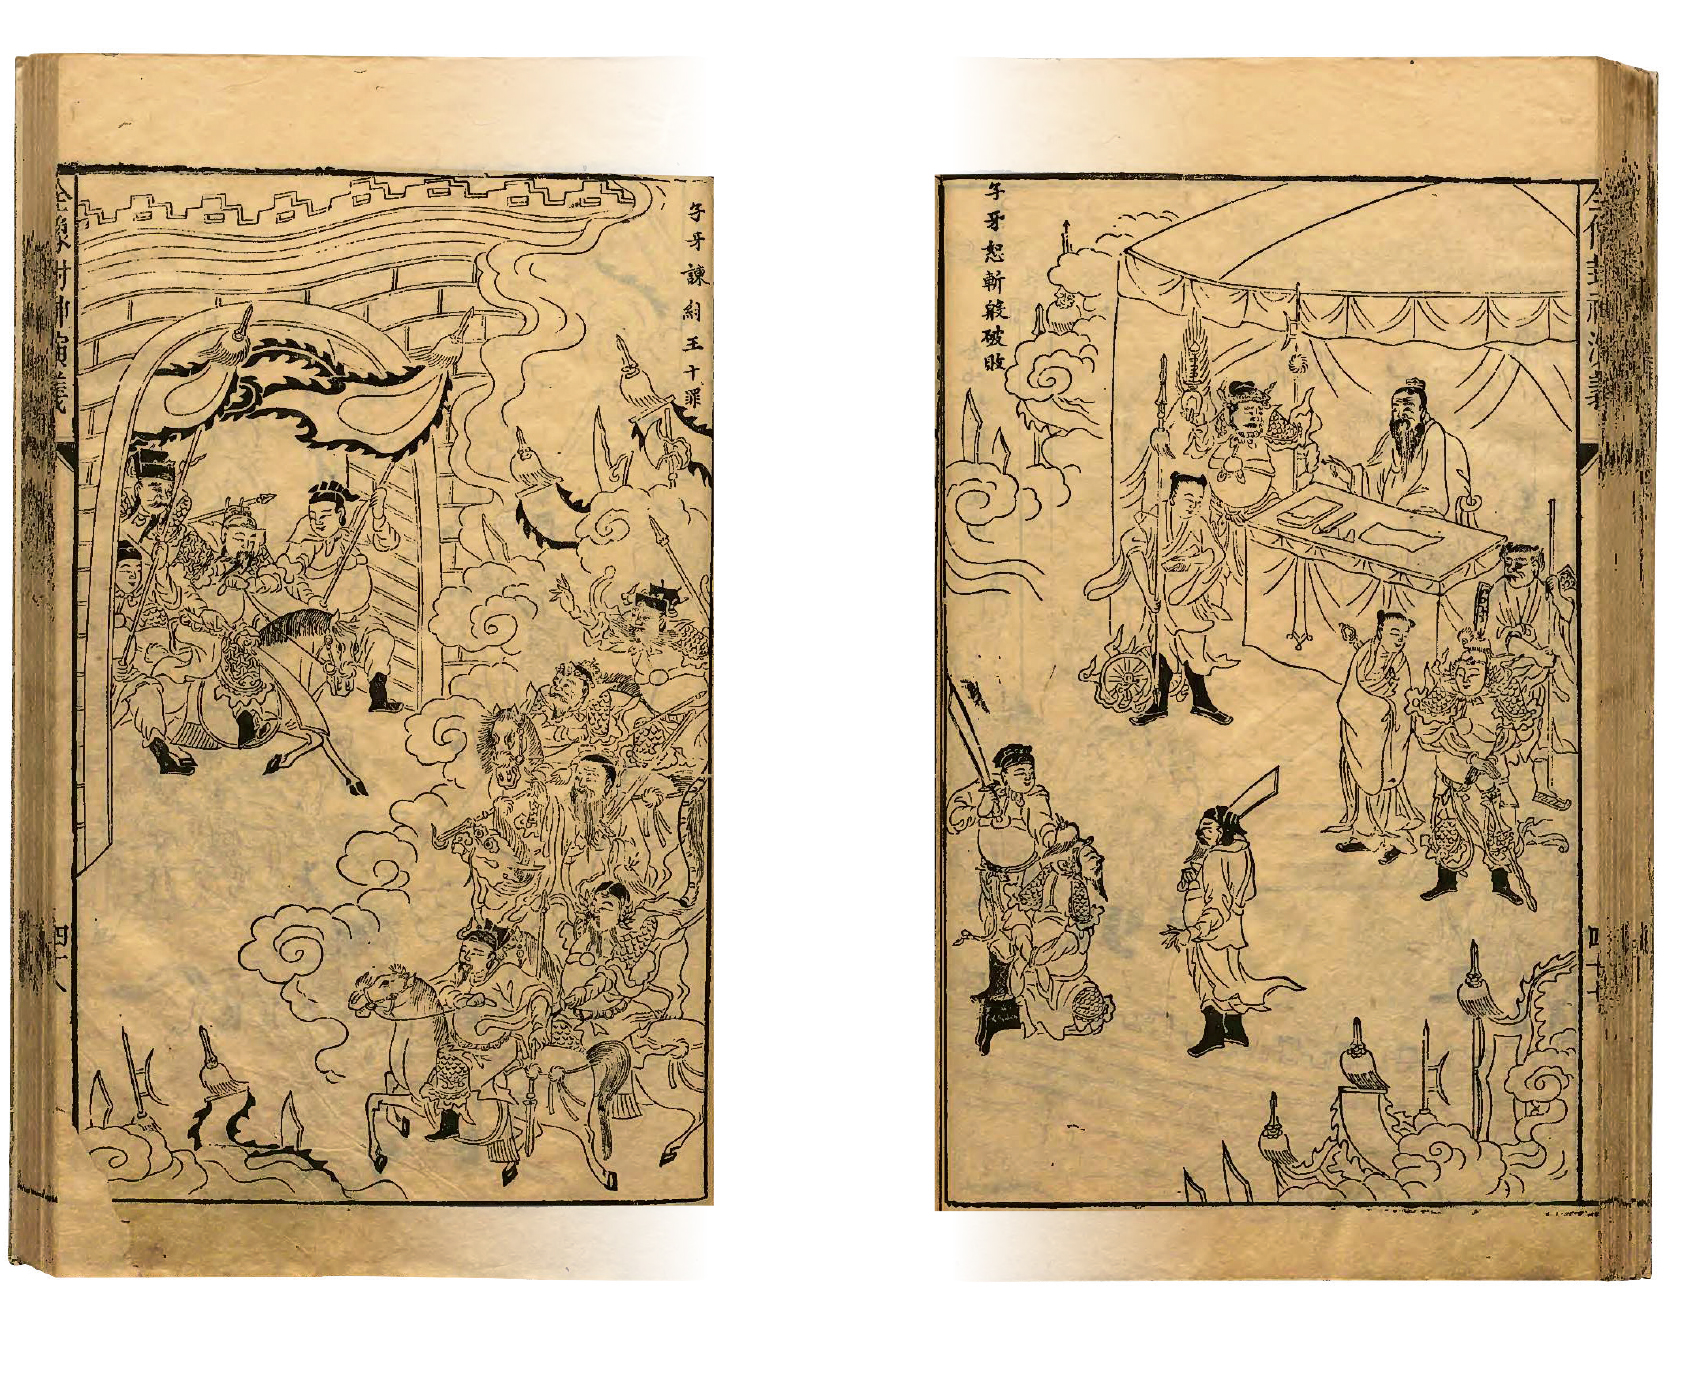 全像封神演義
子牙恕斬殷破敗
子牙諫紂王十罪
全像封神演義
四十八